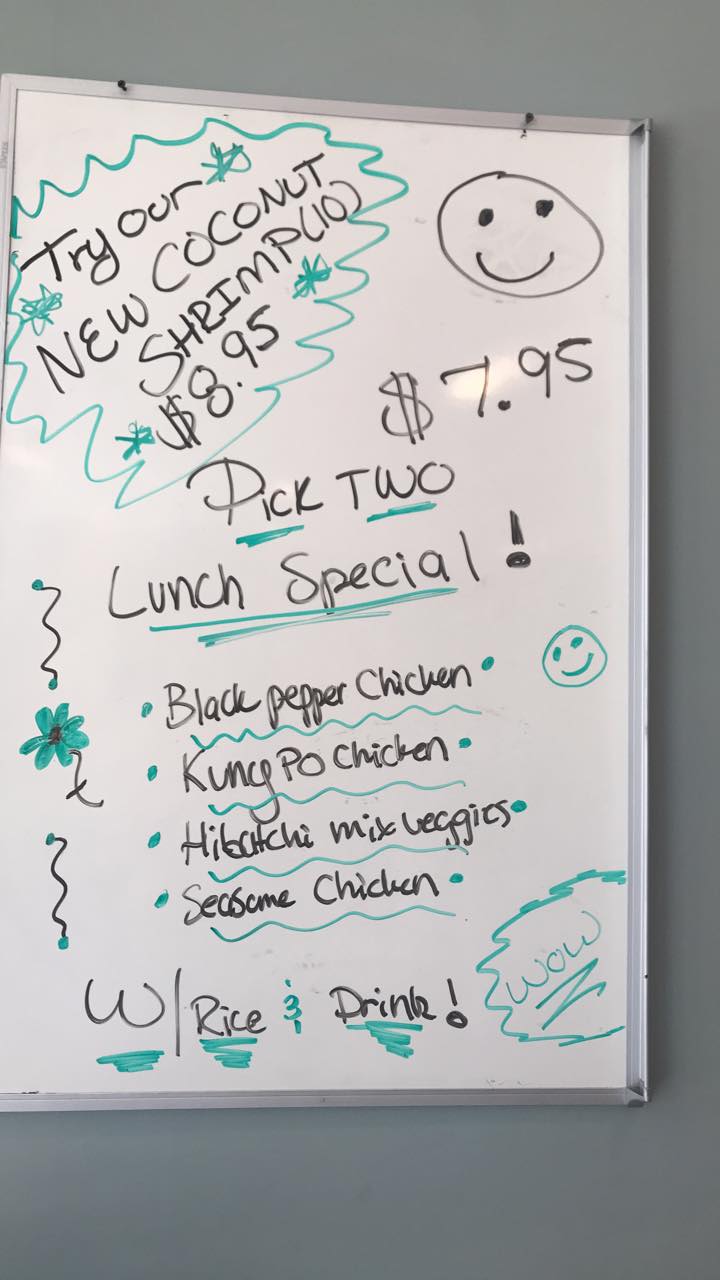 Try our
NEW COCONUT
SHRIMP(10)
$8.95
$7.95
Pick TWO
Lunch Special!
• Black pepper Chicken •
• Kung Po Chicken •
• Hibatchi mix veggies •
• Seasome Chicken •
W/Rice & Drink!
WOW